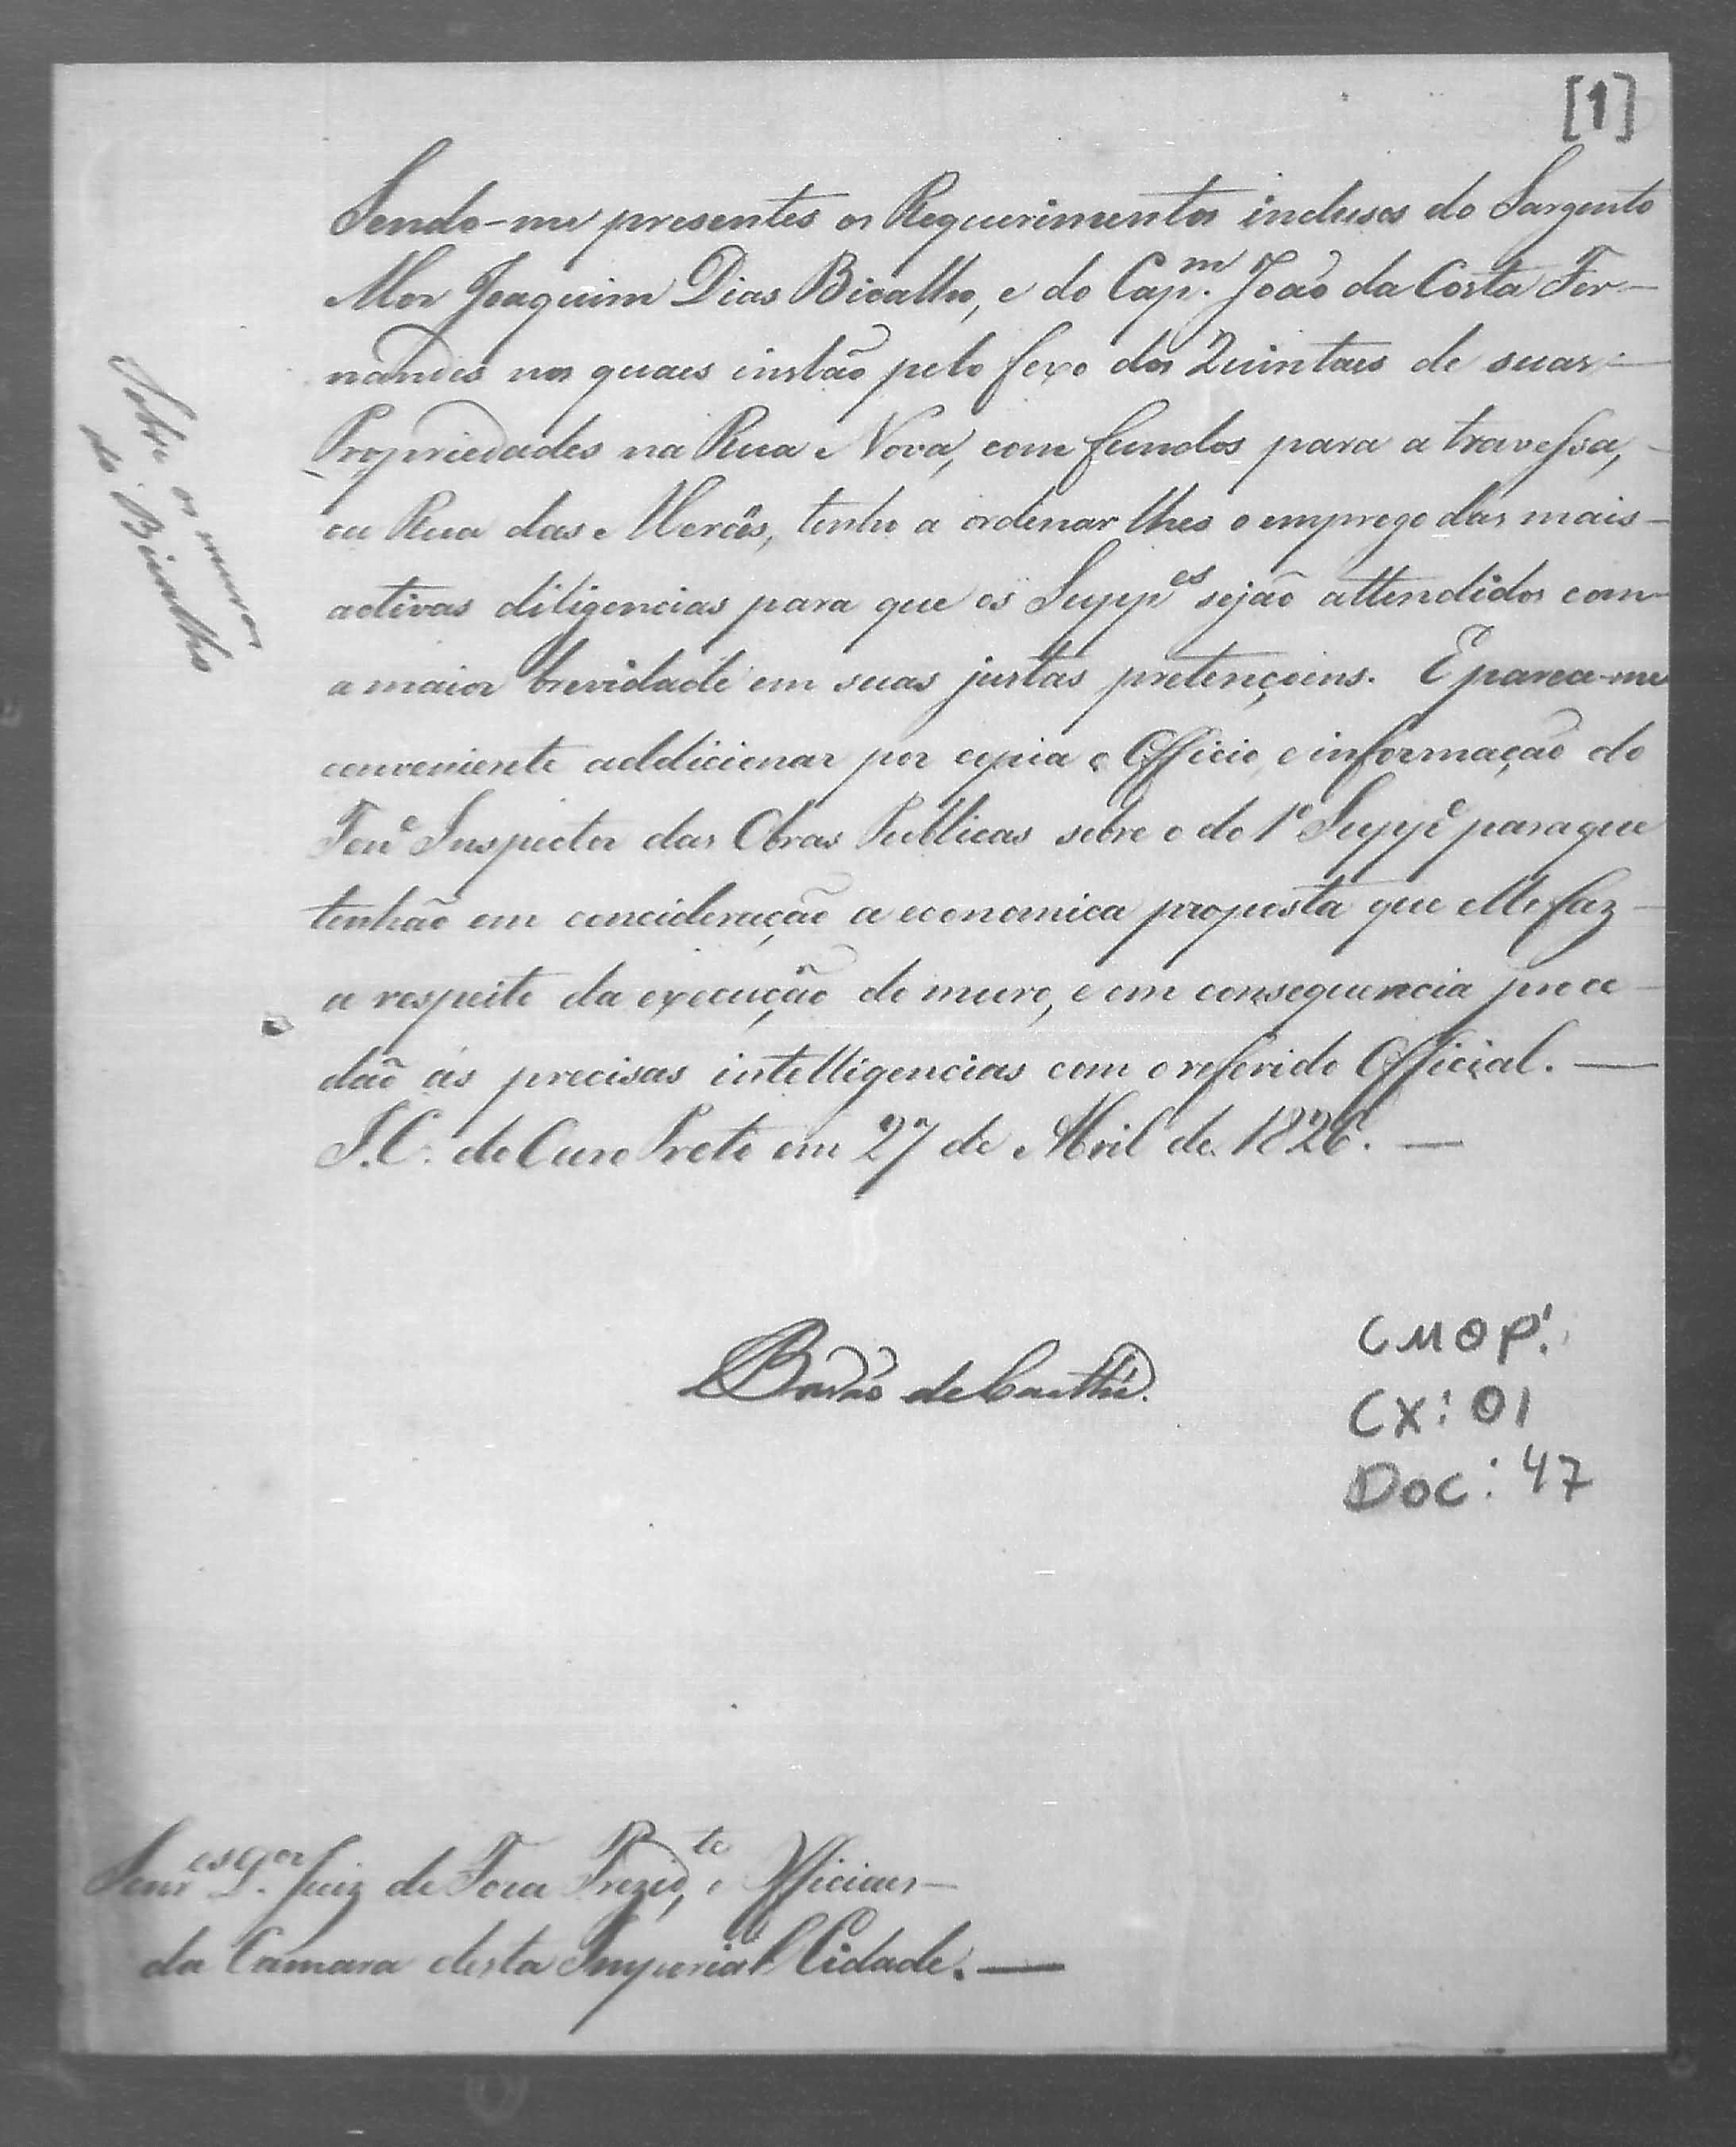 [1]
Sendo-me presentes os Requerimentos inclusos do Sargento
Mor Joaquim Dias Bicalho, e do Cap.m João da Costa Fer-
nandes nos quaes instão pelo fexo dos Quintaes de suas
Propriedades na Rua Nova, com fundos para a travessa,
ou Rua das Mercês, tenho a ordenar lhes o emprego das mais
activas diligencias para que os Supp.es sejão attendidos com
a maior brevidade em suas justas pretençoens. E parece-me
conveniente addicionar por copia o Officio, e informação do
Ten.e Inspector das Obras Publicas sobre o do 1.º Supp.e para que
tenhão em concideração a economica proposta que elle faz
a respeito da execução do muro, e em consequencia proce-
dão ás precisas intelligencias com o referido Official. —
I. C. do Ouro Preto em 27 de Abril de 1826. —
Barão de Caethé.
Sobre os muros
do Bicalho
CMOP.
CX: 01
DOC: 47
Senr.es D.or Juiz de Fora Prezid.te, e Officiaes
da Camara desta Imperial Cidade. —